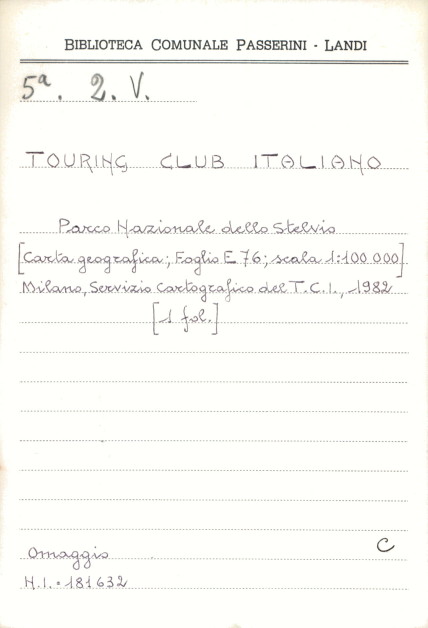 BIBLIOTECA COMUNALE PASSERINI - LANDI
5ª. 2. V.
TOURING CLUB ITALIANO
Parco Nazionale dello Stelvio
[Carta geografica; Foglio E 76; scala 1:100 000]
Milano, Servizio Cartografico del T.C.I., 1982
[1 fol.]
C
Omaggio
N.I. = 181632